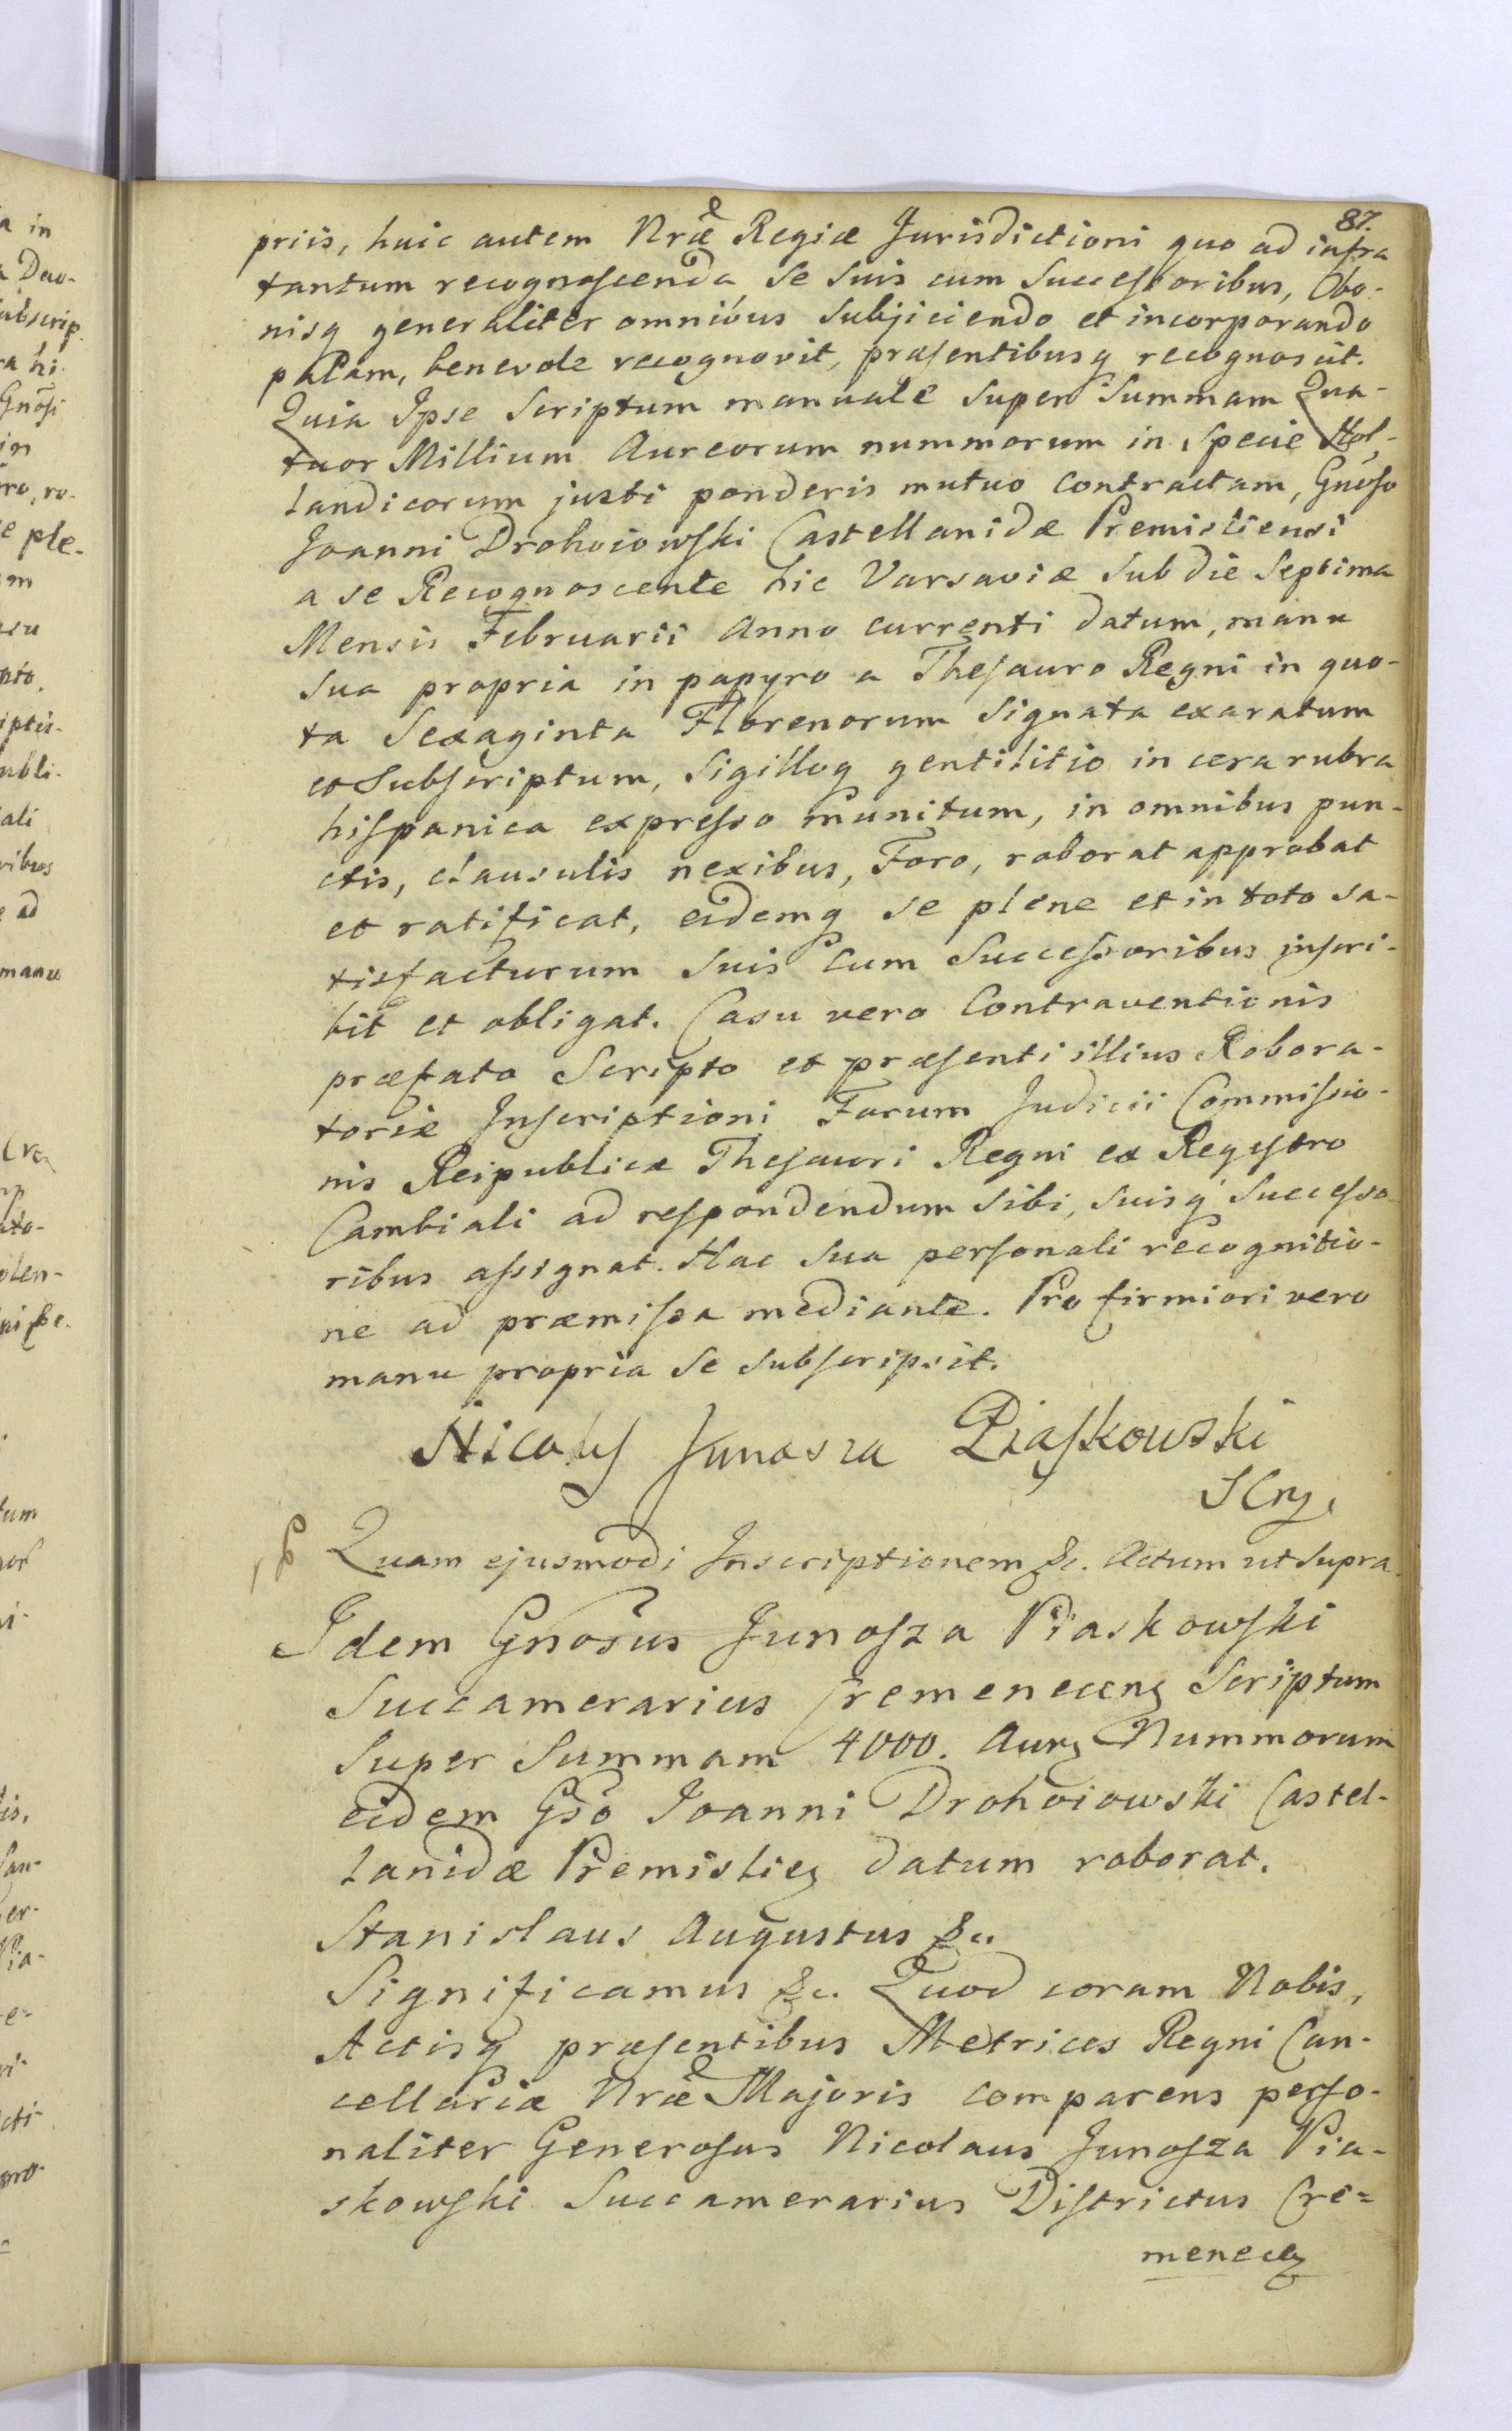 87.
priis, huic autem Nræ Regiæ Jurisdictioni quo ad infra
tantum recognoscenda, se suis cum Successoribus, Obo-
nisq generaliter omnibus subjiciendo et incorporando
palam, benevole recognovit, præsentibusq recognoscit.
Quia Ipse Scriptum manuale super Summam Qua-
tuor Millium Aureorum nummorum in specie Hol-
landicorum justi ponderis mutuo contractam, Gnoso
Joanni Drohoiowski Castellanidæ Premisliensi
a se Recognoscente hic Varsaviæ sub die Septima
Mensis Februarii Anno currenti datum, manu
sua propria in papyro a Thesauro Regni in quo-
ta Sexaginta Florenorum signata exaratum
et subscriptum, Sigilloq gentilitio in cera rubra
hispanica expresso munitum, in omnibus pun-
ctis, clausulis nexibus, Foro, roborat approbat
et ratificat, eidemq se plene et in toto sa-
tisfacturum suis cum Successoribus inscri-
bit et obligat. Casu vero Contraventionis
præfato Scripto et præsenti illius Robora-
toriæ Inscriptioni Forum Judicii Commissio-
nis Reipublicæ Thesauri Regni ex Regestro
Cambiali ad respondendum sibi, suisq Successo-
ribus assignat. Hac sua personali recognitio-
ne ad præmissa mediante. Pro firmiori vero
manu propria se subscripsit.
Nicolaus Junosza Piaskowski
Quam ejusmodi Inscriptionem &c. Actum ut supra.
Idem Gnosus Junosza Piaskowski
Succamerarius Cremenecens Scriptum
super Summam 4000. Aur Nummorum
eidem Gso Joanni Drohoiowski Castel-
lanidæ Premislien datum roborat.
Stanislaus Augustus &c.
Significamus &c. Quod coram Nobis,
Actisq præsentibus Metrices Regni Can-
cellariæ Nræ Majoris comparens perso-
naliter Generosus Nicolaus Junosza Pia-
skowski Succamerarius Districtus Cre=
menecen